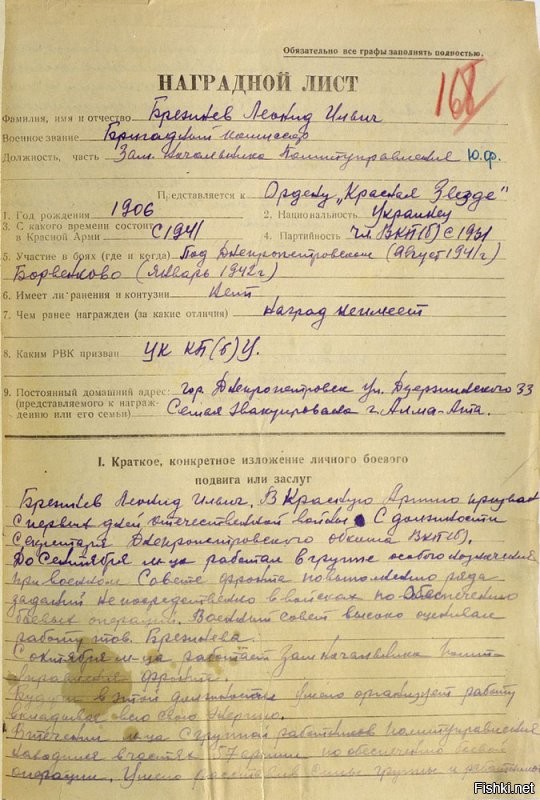 Обязательно все графы заполнять полностью.
168
НАГРАДНОЙ ЛИСТ
Фамилия, имя и отчество Брежнев Леонид Ильич
Военное звание Бригадный комиссар
Должность, часть Зам. Начальника Политуправления Ю.Ф.
Представляется к Ордену „Красная Звезда"
1. Год рождения 1906 2. Национальность Украинец
3. С какого времени состоит в Красной Армии С 1941 4. Партийность Чл. ВКП(б) с 1931
5. Участие в боях (где и когда) Под Днепропетровском (Август 1941 г)
Борвенково (Январь 1942 г)
6. Имеет ли ранения и контузии Нет
7. Чем ранее награжден (за какие отличия) Наград неимеет
8. Каким РВК призван ЦК КП(б)У.
9. Постоянный домашний адрес: гор Днепропетровск ул. Дзержинского 33
(представляемого к награждению или его семьи) Семья эвакуирована г. Алма-Ата.
I. Краткое, конкретное изложение личного боевого
подвига или заслуг
Брежнев Леонид Ильич. В Красную Армию призван
с первых дней отечественной войны с должности
Секретаря Днепропетровского обкома ВКП(б).
До Сентября м-ца работал в группе особого назначения
при военном Совете фронта по выполнению ряда
заданий непосредственно в войсках по обеспечению
боевых операций. Военный совет высоко оценивал
работу тов. Брежнева.
С октября м-ца работает Зам начальника Полит-
управления фронта.
Будучи в этой должности умело организует работу
вкладывая всю свою энергию.
В течении м-ца с группой работников политуправления
находился в частях 57 армии по обеспечению боевой
операции. Умело расставив силы группы и
Fishki.net